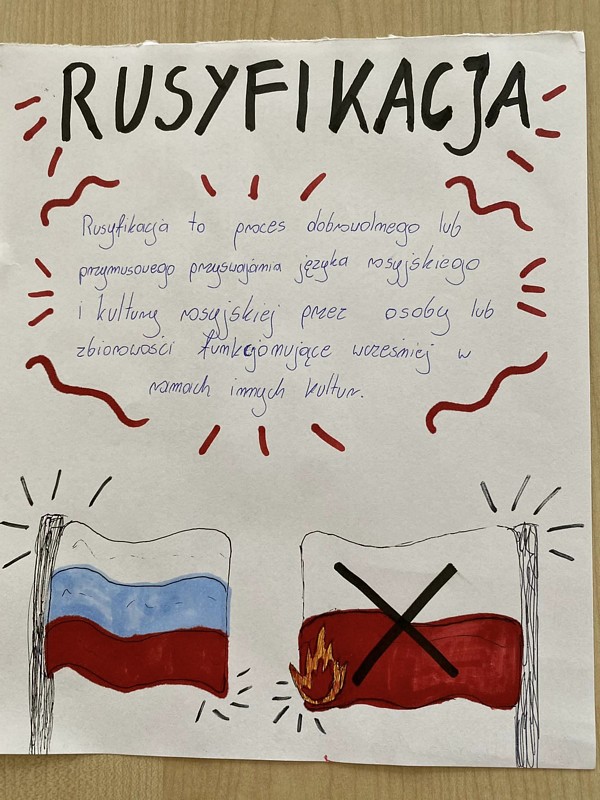 RUSYFIKACJA
Rusyfikacja to proces dobrowolnego lub
przymusowego przyswajania języka rosyjskiego
i kultury rosyjskiej przez osoby lub
zbiorowości funkcjonujące wcześniej w
ramach innych kultur.